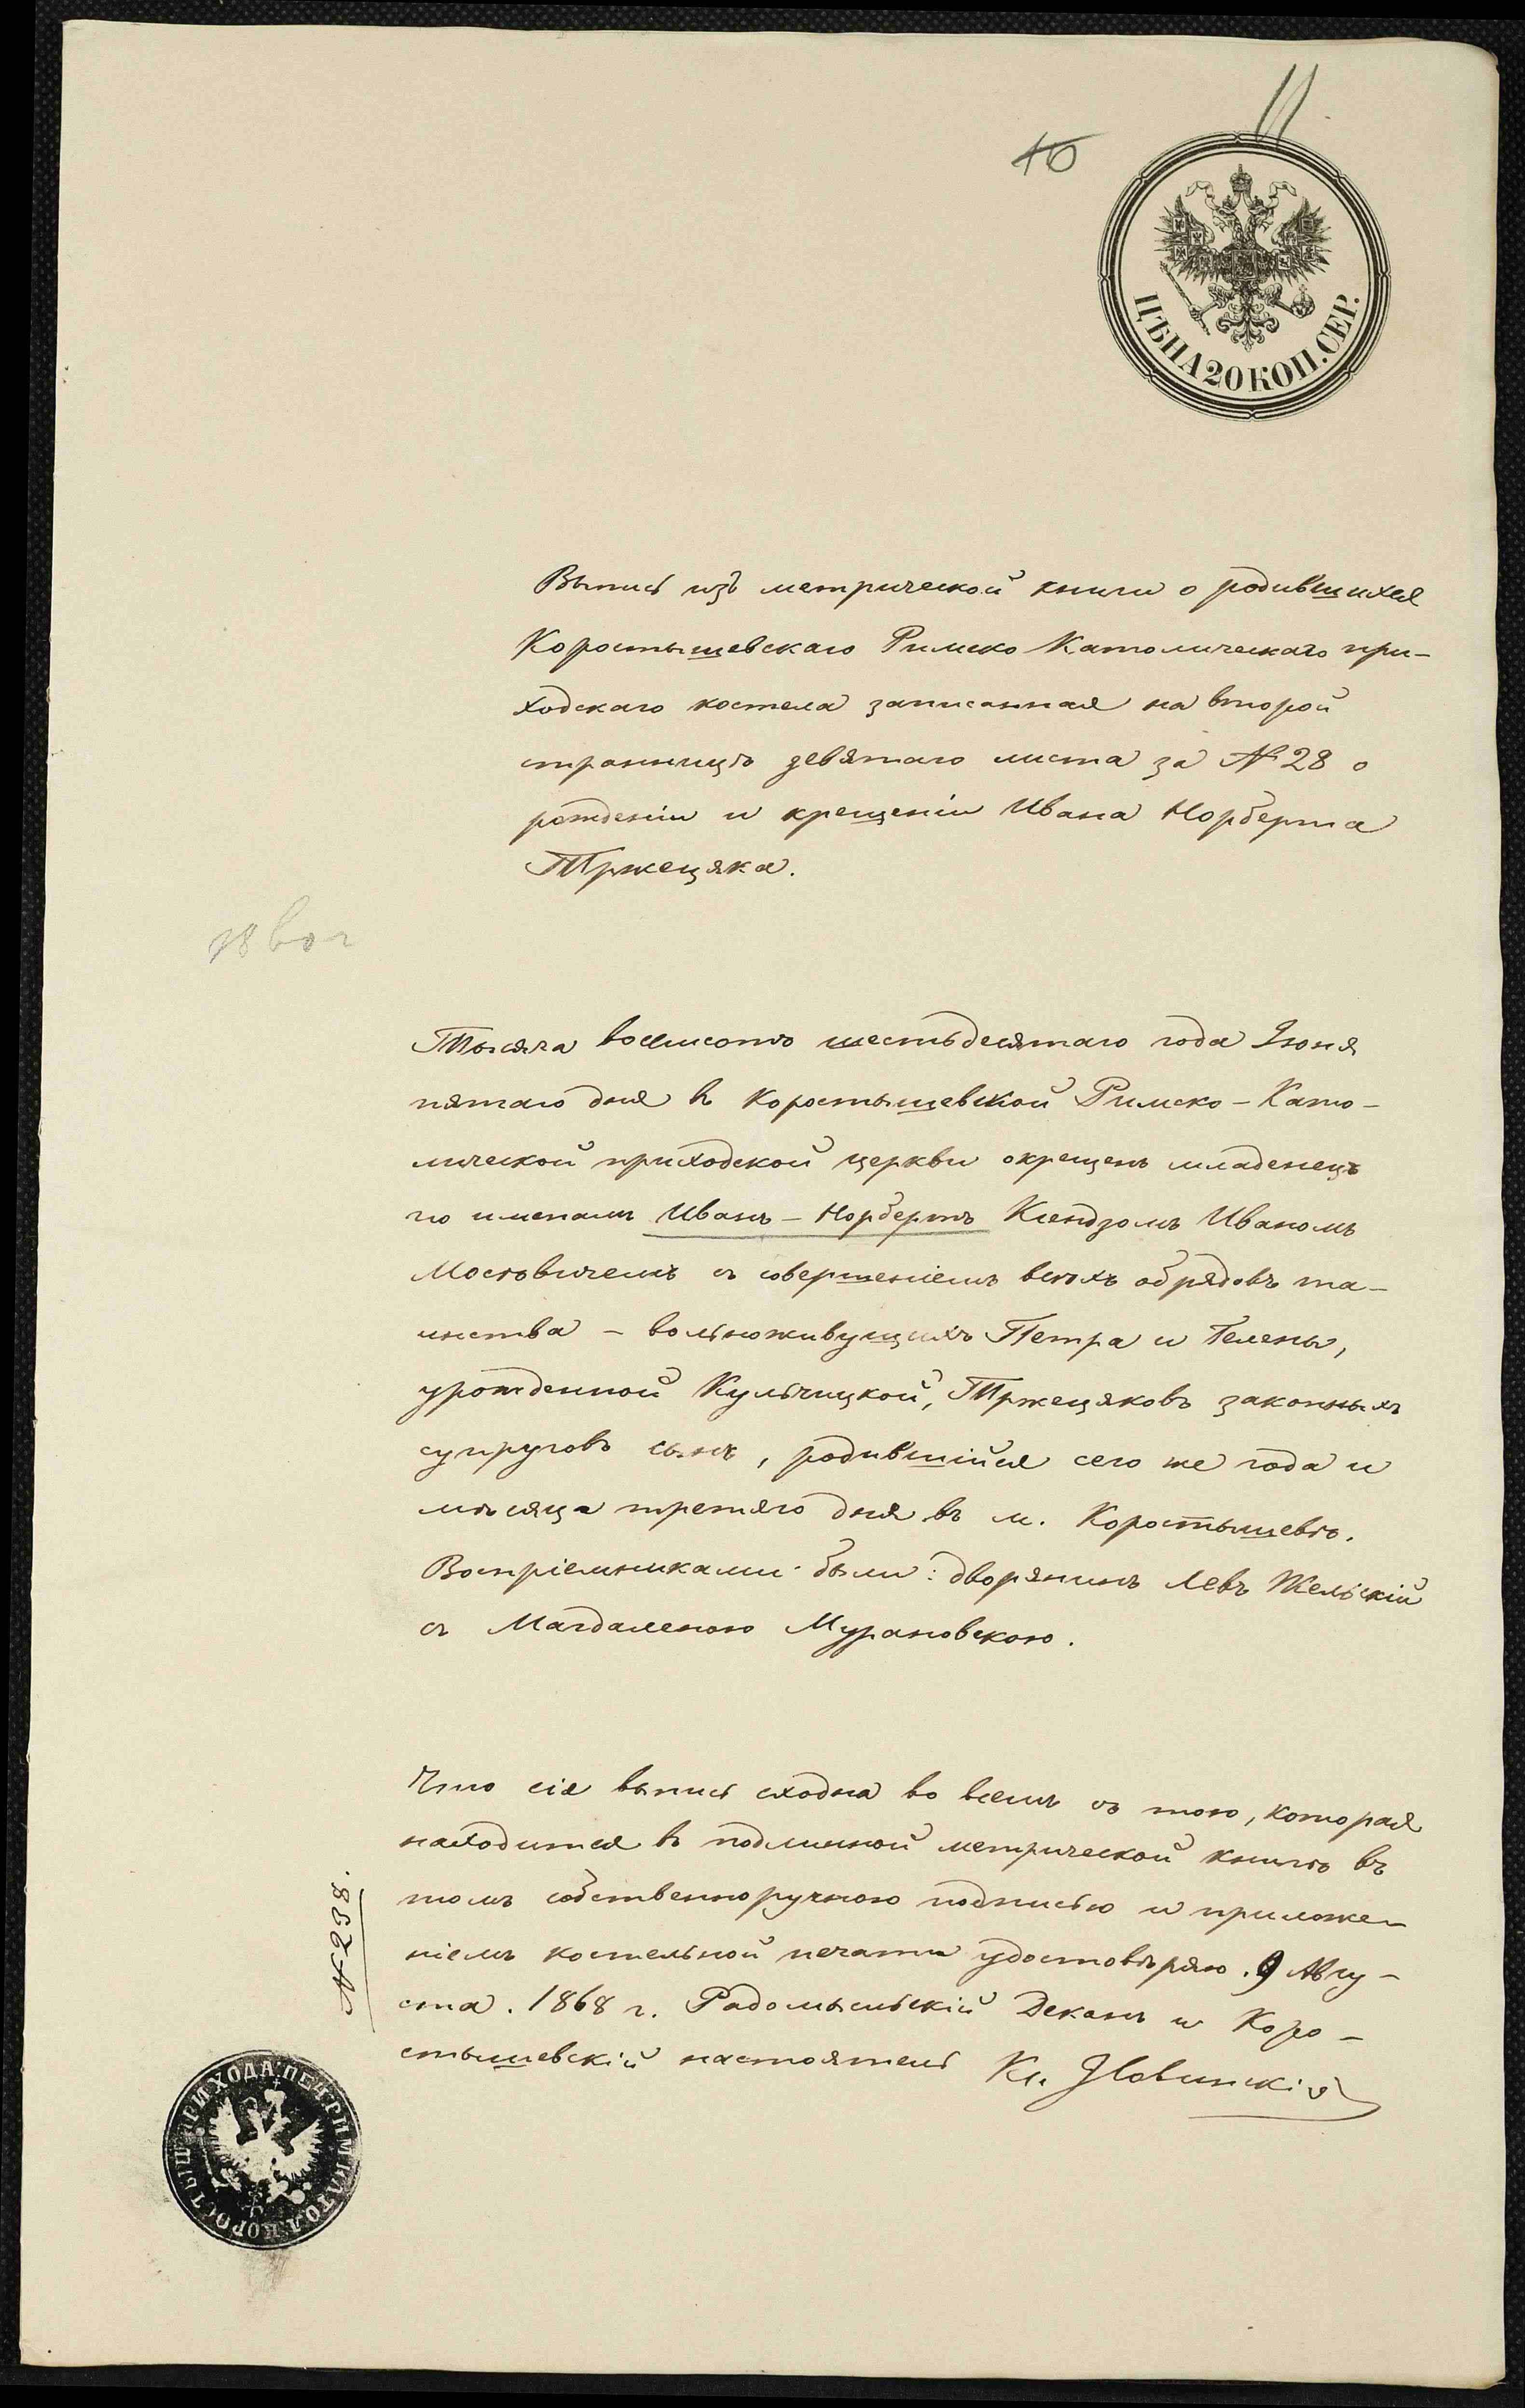 11
10
ЦѢНА 20 КОП. СЕР.
Выпись изъ метрической книги о родившихся
Коростышевскаго Римско Католическаго при-
ходскаго костела записанная на второй
странницѣ девятаго листа за № 28 о
рожденіи и крещеніи Ивана Норберта
Тржецяка.
Тысяча восемсотъ шестьдесятаго года Іюня
пятаго дня въ Коростышевской Римско-Като-
лической приходской церкви окрещенъ младенецъ
по именамъ Иванъ-Норбертъ Ксендзомъ Иваномъ
съ совершеніемъ всѣхъ обрядовъ та-
инства - вольноживущихъ Петра и Гелены,
урожденной Кульчицкой, Тржецяковъ законныхъ
супруговъ сынъ, родившійся сего же года и
мѣсяца третяго дня въ м. Коростышевѣ.
Воспріемниками были: дворянинъ Левъ Жельскій
съ Магдаленою Мурановскою.
Что сія выпись сходна во всемъ съ тою, которая
находится въ подлинной метрической книгѣ въ
томъ собственноручною подписью и приложе-
ніемъ костельной печати удостовѣряю. 9 Авгу-
ста. 1868 г. Радомысльскій Деканъ и Коро-
стышевскій настоятель Кс.
№ 238.
ПЕЧ. РИМ. КАТОЛ. КОРОСТЫШ. ПРИХОДА